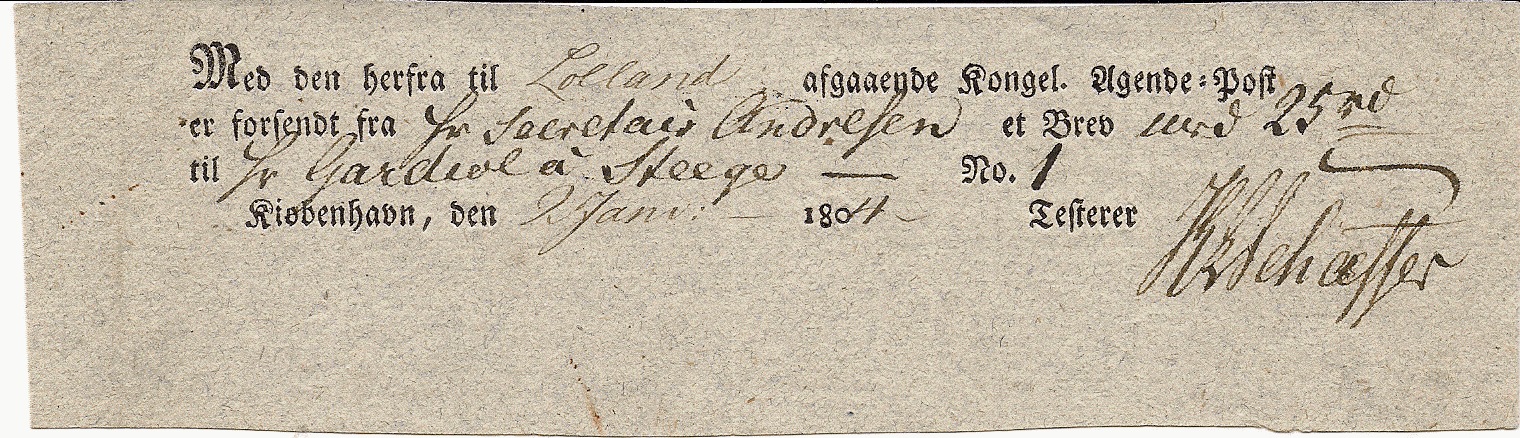 Med den herfra til Lolland afgaaende Kongel. Agende-Post
er forsendt fra Hr Secretair Andresen et Brev med 25 rd
til Hr Gardiol à Steege — No. 1
Kiøbenhavn, den 2 Janv: 1804 Testerer
Schæffer